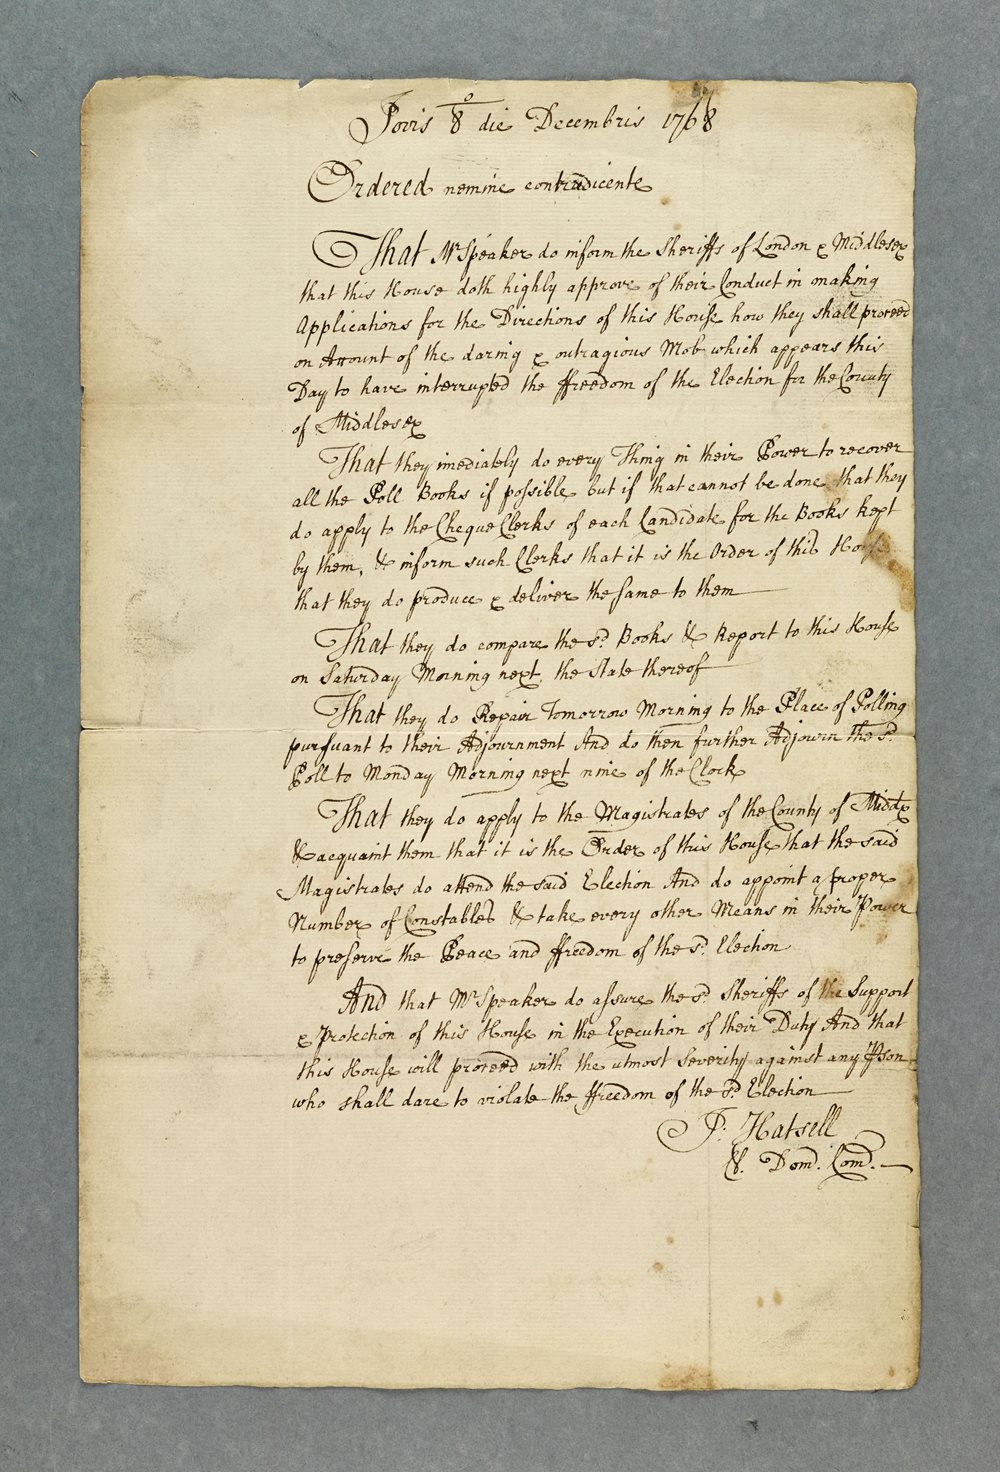 Jovis 8º die Decembris 1768
Ordered nemine contradicente
That Mr Speaker do inform the Sheriffs of London & Middlesex
that this House doth highly approve of their Conduct in making
Applications for the Directions of this House how they shall proceed
on Account of the daring & outragious Mob which appears this
Day to have interrupted the ffreedom of the Election for the County
of Middlesex
That they imediately do every Thing in their Power to recover
all the Poll Books if possible but if that cannot be done that they
do apply to the Cheque Clerks of each Candidate for the Books kept
by them, & inform such Clerks that it is the Order of this House
that they do produce & deliver the same to them
That they do compare the sd. Books & Report to this House
on Saturday Morning next, the State thereof
That they do Repair Tomorrow Morning to the Place of Polling
pursuant to their Adjournment And do then further Adjourn the sd.
Poll to Monday Morning next nine of the Clock
That they do apply to the Magistrates of the County of Middx
& acquaint them that it is the Order of this House that the said
Magistrates do attend the said Election And do appoint a proper
Number of Constables & take every other Means in their Power
to preserve the Peace and ffreedom of the sd. Election
And that Mr Speaker do assure the sd. Sheriffs of the Support
& Protection of this House in the Execution of their Duty And that
this House will proceed with the utmost Severity against any Pson
who shall dare to violate the ffreedom of the sd. Election
J: Hatsell
Cl. Dom. Com.